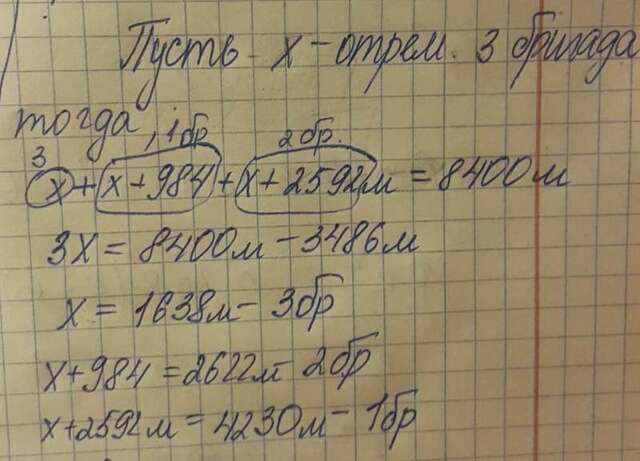 Пусть - х - отрем. 3 бригада
тогда, 1 бр 2 бр.
3
х + х + 984 + х + 2592м = 8400м
3х = 8400м - 3486м
х = 1638м - 3бр
х+984 = 2622м - 2бр
х+2592м = 4230м - 1бр